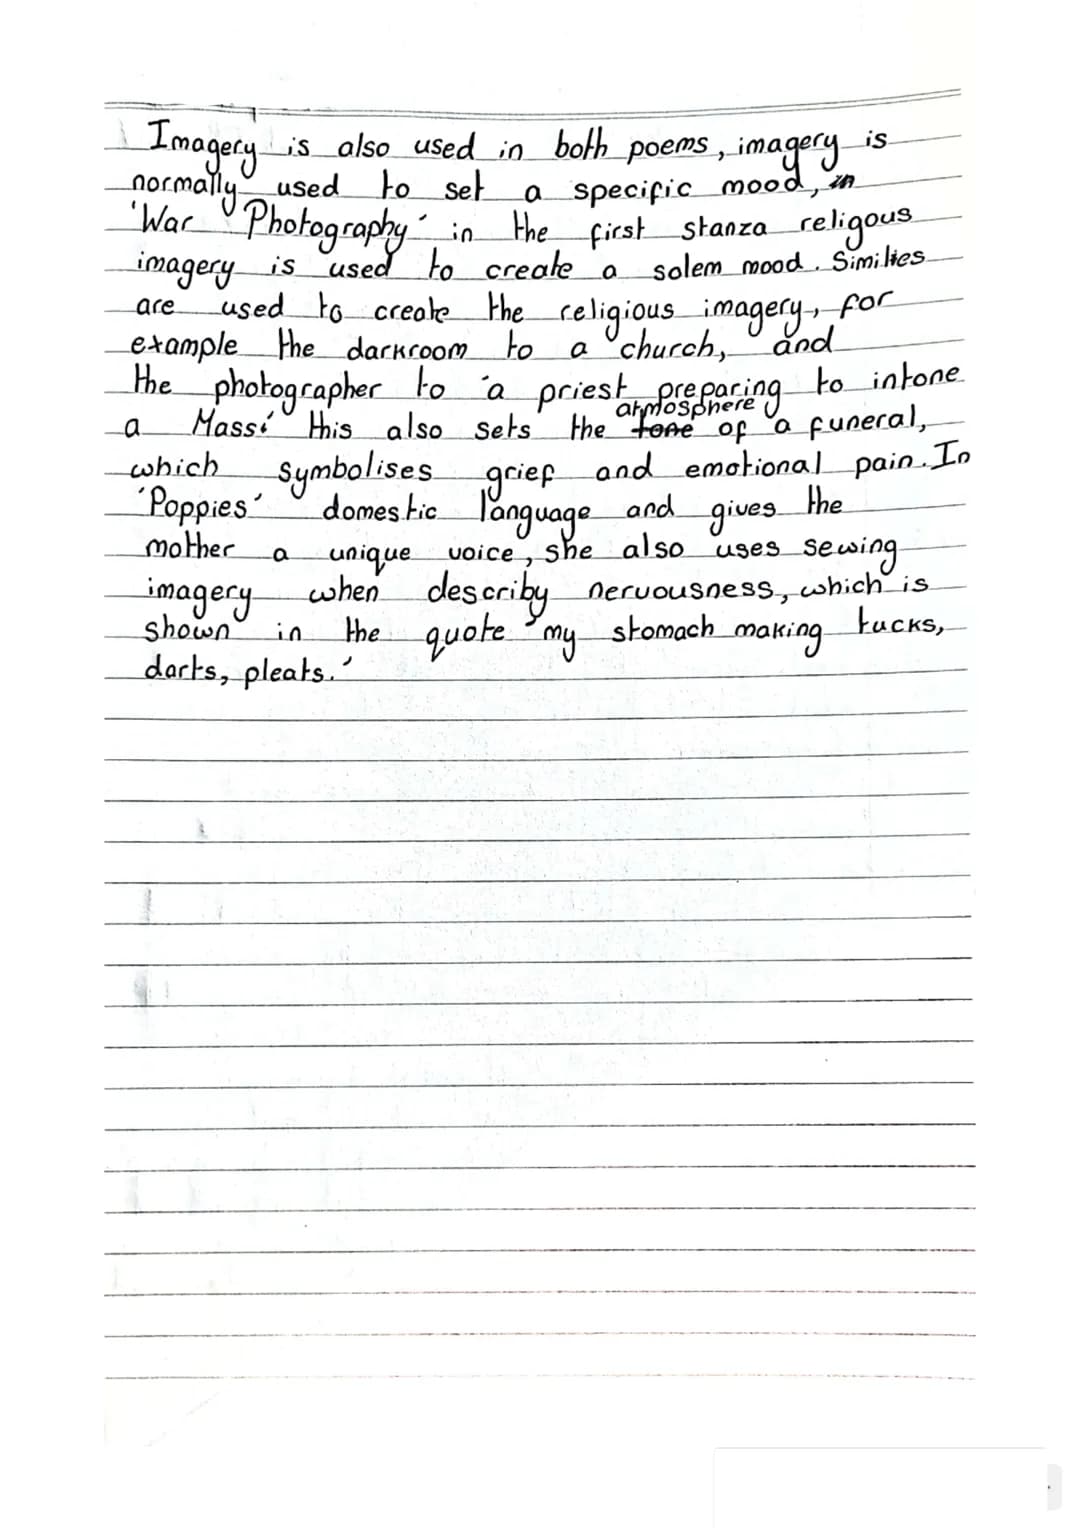 Imagery is also used in both poems, imagery is
normally used to set a specific mood, in
'War Photography' in the first stanza religous
imagery is used to create a solem mood. Similies
are used to create the religious imagery, for
example the darkroom to a church, and
the photographer to 'a priest preparing to intone
a Mass.' this also sets the tone atmosphere of a funeral,
which symbolises grief and emotional pain. In
'Poppies' domestic language and gives the
mother a unique voice, she also uses sewing
imagery when describy nervousness, which is
shown in the quote 'my stomach making tucks,
darts, pleats.'